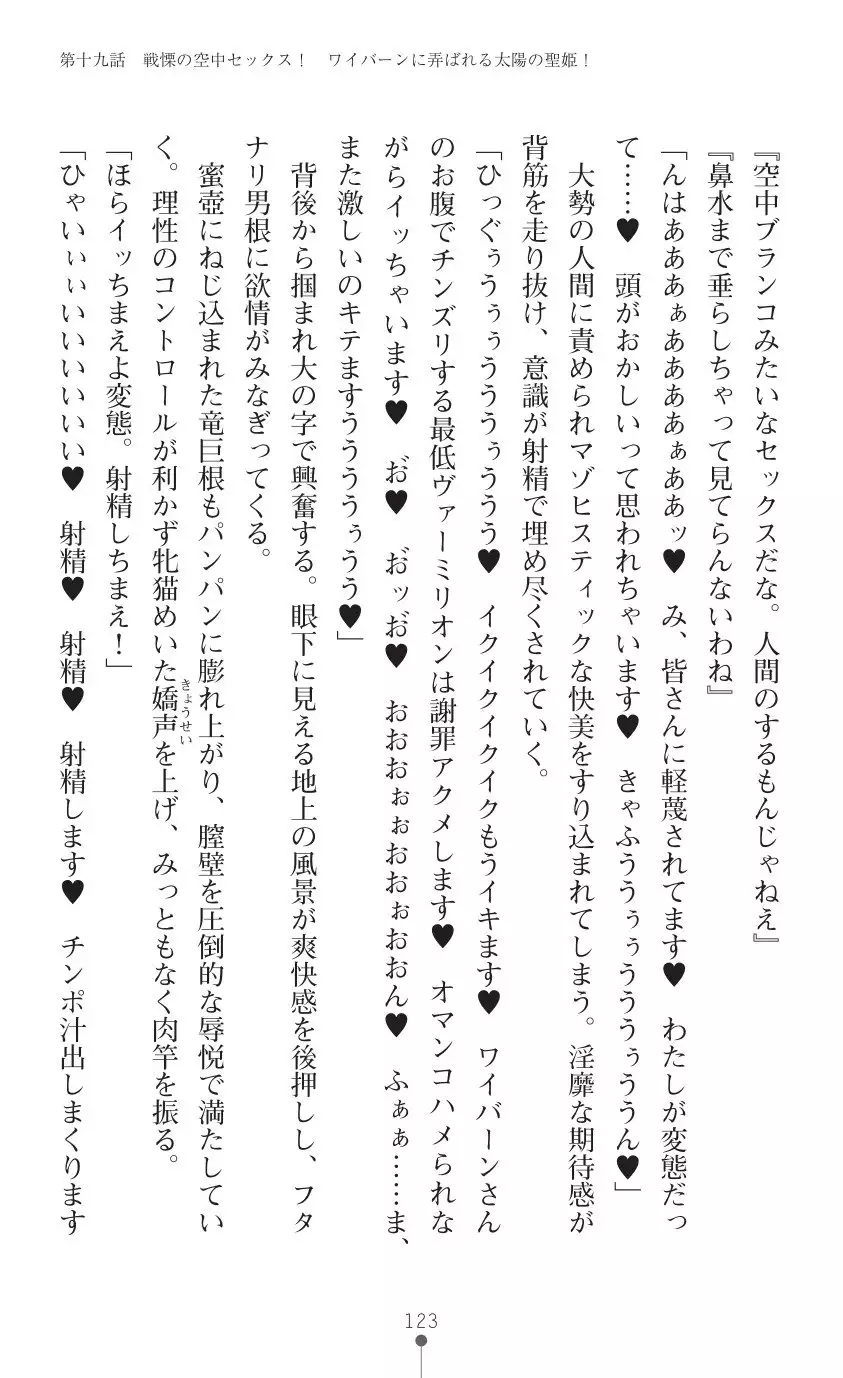 第十九話　戦慄の空中セックス！　ワイバーンに弄ばれる太陽の聖姫！
『空中ブランコみたいなセックスだな。人間のするもんじゃねえ』
『鼻水まで垂らしちゃって見てらんないわね』
「んはあああぁああああぁああッ♥　み、皆さんに軽蔑されてます♥　わたしが変態だっ
て……♥　頭がおかしいって思われちゃいます♥　きゃふううぅぅうううぅううん♥」
　大勢の人間に責められマゾヒスティックな快美をすり込まれてしまう。淫靡な期待感が
背筋を走り抜け、意識が射精で埋め尽くされていく。
「ひっぐぅうぅぅうううぅううう♥　イクイクイクイクもうイキます♥　ワイバーンさん
のお腹でチンズリする最低ヴァーミリオンは謝罪アクメします♥　オマンコハメられな
がらイッちゃいます♥　お゛♥　お゛ッお゛♥　おおおぉぉおおぉおおん♥　ふぁぁ……ま、
また激しいのキてますううううぅうう♥」
　背後から掴まれ大の字で興奮する。眼下に見える地上の風景が爽快感を後押しし、フタ
ナリ男根に欲情がみなぎってくる。
　蜜壺にねじ込まれた竜巨根もパンパンに膨れ上がり、膣壁を圧倒的な辱悦で満たしてい
く。理性のコントロールが利かず牝猫めいた嬌声を上げ、みっともなく肉竿を振る。
きょうせい
「ほらイッちまえよ変態。射精しちまえ！」
「ひゃいぃぃいいいいいいい♥　射精♥　射精♥　射精します♥　チンポ汁出しまくります
123